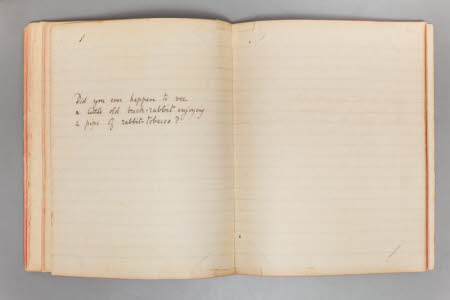 1
Did you ever happen to see
a little old buck-rabbit enjoying
a pipe of rabbit-tobacco?